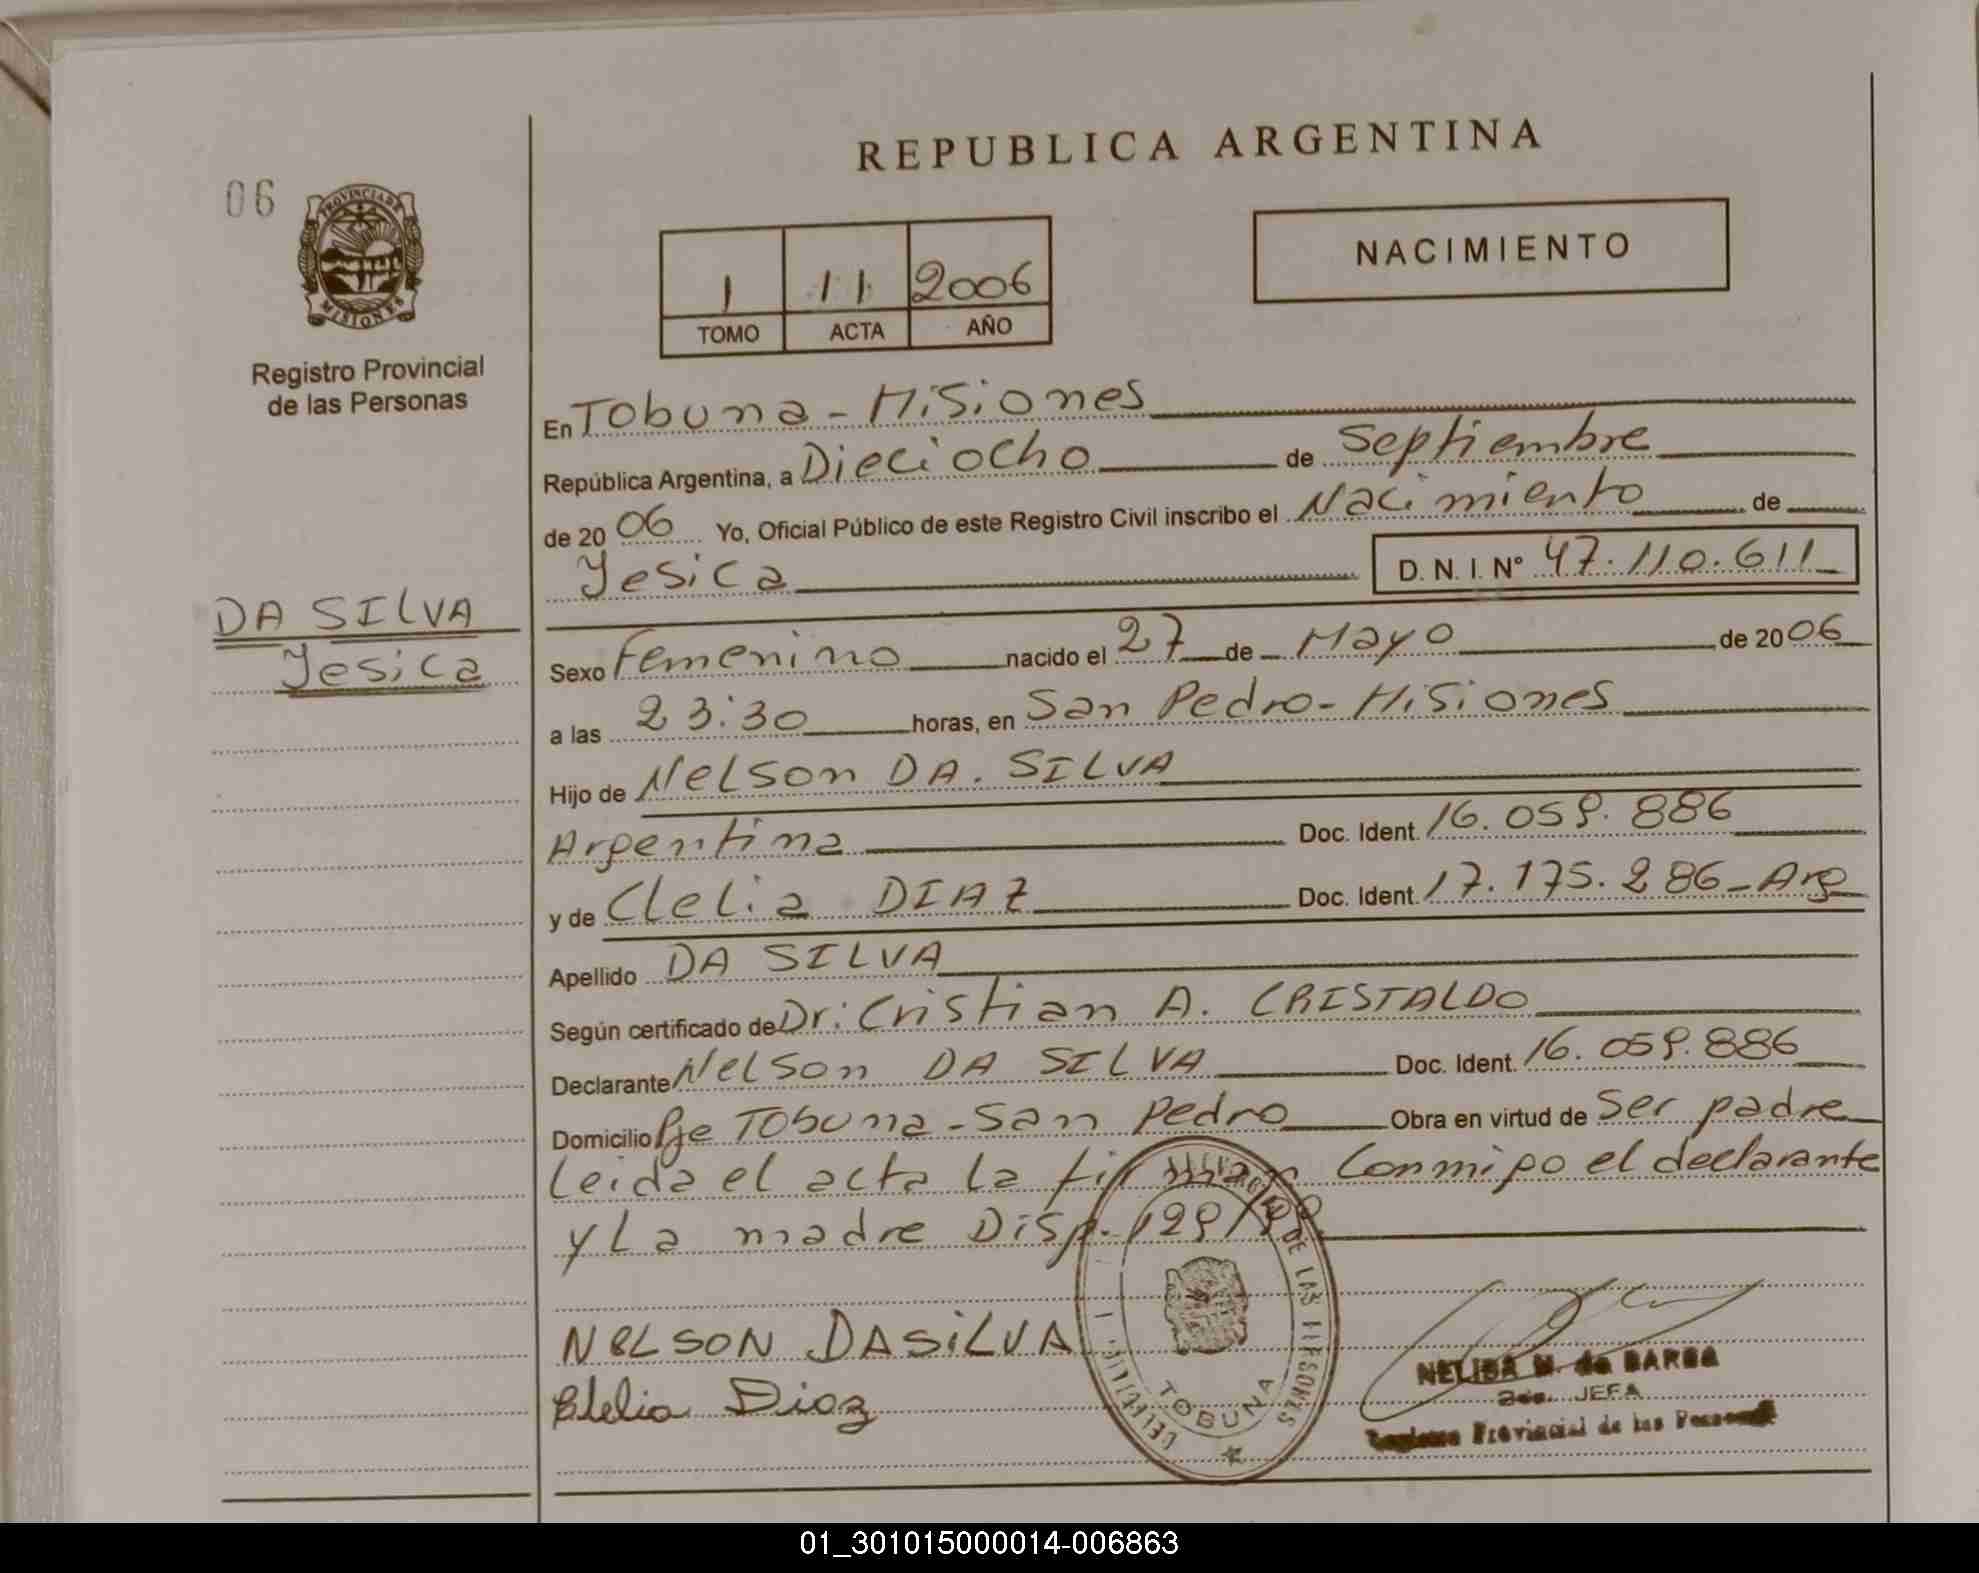 REPUBLICA ARGENTINA
06
PROVINCIA DE
MISIONES
Registro Provincial
de las Personas
1 11 2006
TOMO ACTA AÑO
NACIMIENTO
En Tobuna - Misiones
República Argentina, a Dieciocho de Septiembre
de 20 06 Yo, Oficial Público de este Registro Civil inscribo el Nacimiento de
Yesica D. N. I. N° 47.110.611
DA SILVA
Yesica
Sexo Femenino nacido el 27 de Mayo de 20 06
a las 23:30 horas, en San Pedro - Misiones
Hijo de Nelson DA. SILVA
Argentina Doc. Ident. 16.059.886
y de Clelia DIAZ Doc. Ident. 17.175.286 - Arg
Apellido DA SILVA
Según certificado de Dr: Cristian A. CRISTALDO
Declarante Nelson DA SILVA Doc. Ident. 16.059.886
Domicilio Pje Tobuna - San Pedro Obra en virtud de Ser padre
Leida el acta la firman Conmigo el declarante
y La madre Disp. 129/98.
NELSON DASILVA
Clelia Diaz
DE LAS PERSONAS
TOBUNA
NELIDA M. de BARBA
JEFA
Registro Provincial de las Personas
01_301015000014-006863